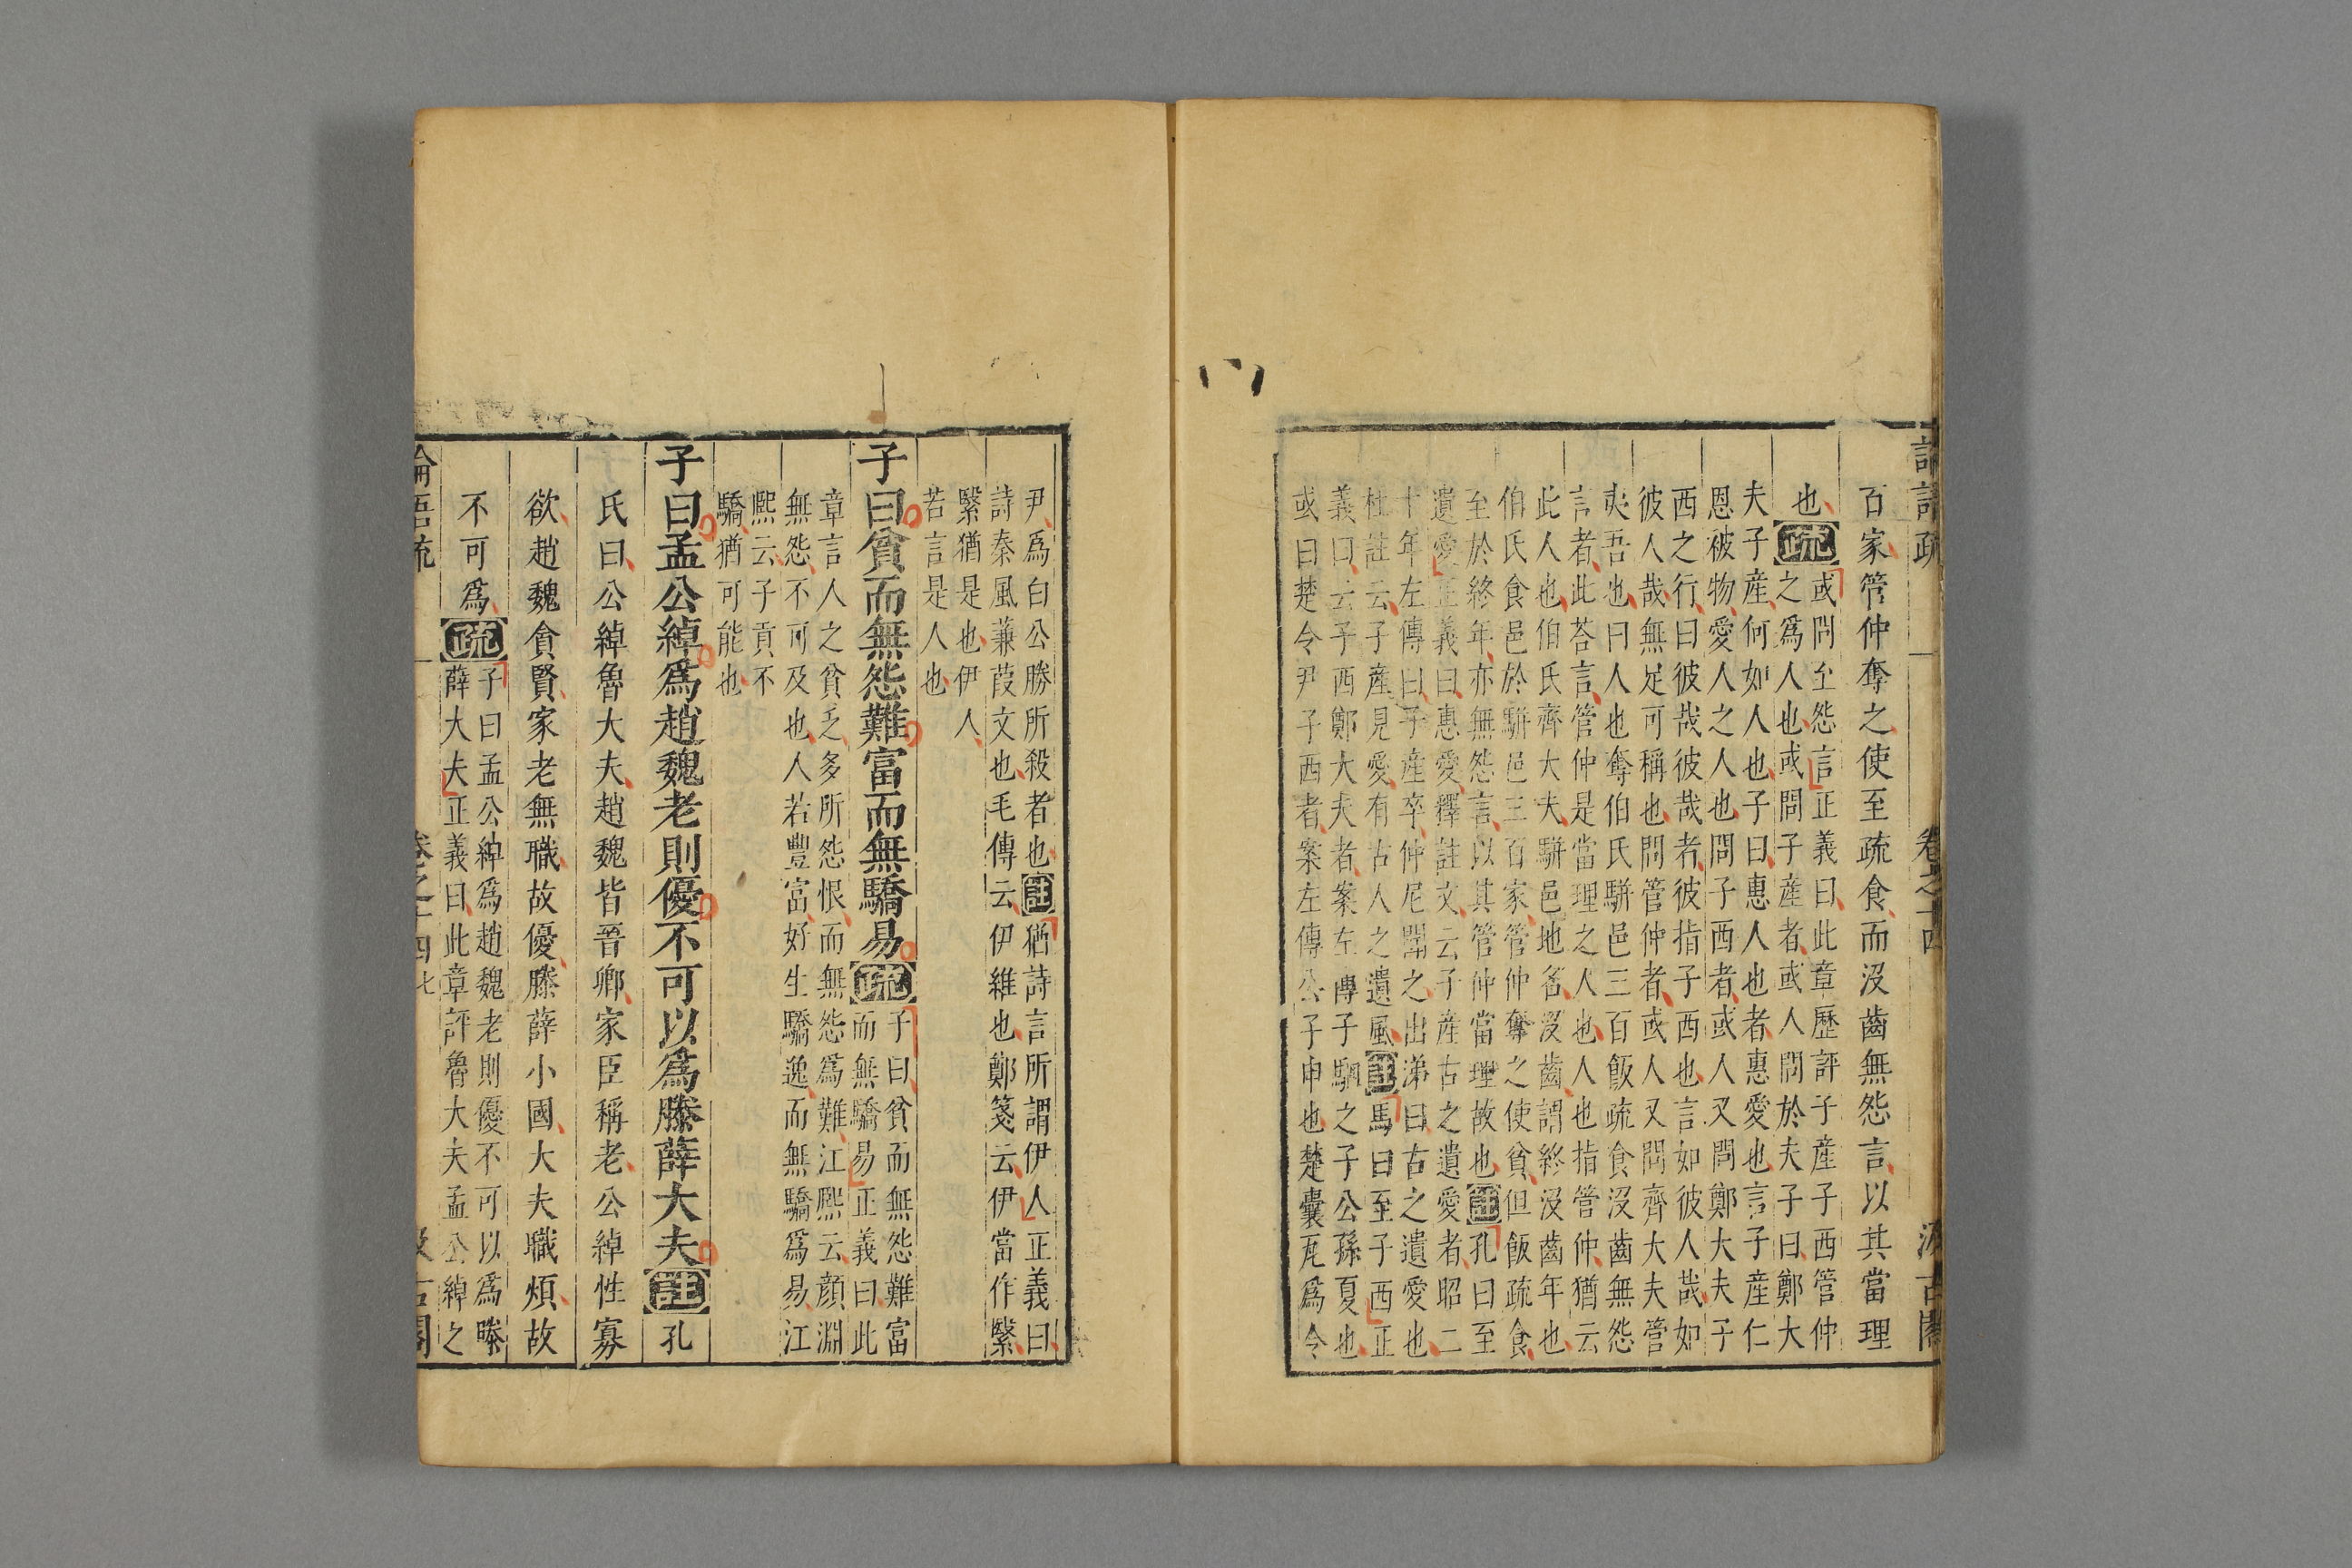 百家管仲奪之使至疏食而沒齒無怨言以其當理
也疏或問至怨言正義曰此章歷評子產子西管仲
之爲人也或問子產者或人問於夫子曰鄭大
夫子產何如人也子曰惠人也者惠愛也言子產仁
恩被物愛人之人也問子西者或人又問鄭大夫子
西之行曰彼哉彼哉者彼指子西也言如彼人哉如
彼人哉無足可稱也問管仲者或人又問齊大夫管
夷吾也曰人也奪伯氏駢邑三百飯疏食沒齒無怨
言者此荅言管仲是當理之人也人也指管仲猶云
此人也伯氏齊大夫駢邑地名沒齒謂終沒齒年也
伯氏食邑於駢邑三百家管仲奪之使貧但飯疏食
至於終年亦無怨言以其管仲當理故也註孔曰至
遺愛正義曰惠愛釋註文云子產古之遺愛者昭二
十年左傳曰子產卒仲尼聞之出涕曰古之遺愛也
杜註云子產見愛有古人之遺風註馬曰至子西正
義曰云子西鄭大夫者案左傳子駟之子公孫夏也
或曰楚令尹子西者案左傳公子申也楚囊瓦爲令
尹爲白公勝所殺者也註猶詩言所謂伊人正義曰
詩秦風蒹葭文也毛傳云伊維也鄭箋云伊當作繄
繄猶是也伊人
若言是人也
子曰貧而無怨難富而無驕易疏子曰貧而無怨難富
而無驕易正義曰此
章言人之貧乏多所怨恨而無怨爲難江熙云顏淵
無怨不可及也人若豐富好生驕逸而無驕爲易江
熙云子貢不
驕猶可能也
子曰孟公綽爲趙魏老則優不可以爲滕薛大夫註孔
氏曰公綽魯大夫趙魏皆晉卿家臣稱老公綽性寡
欲趙魏貪賢家老無職故優滕薛小國大夫職煩故
不可爲疏子曰孟公綽爲趙魏老則優不可以爲滕
薛大夫正義曰此章評魯大夫孟公綽之